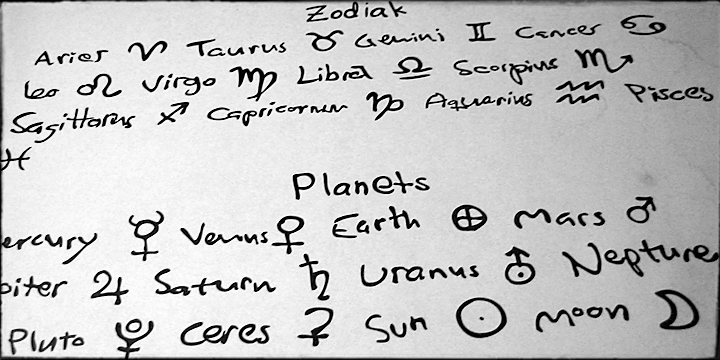 Zodiak
Aries ♈ Taurus ♉ Gemini ♊ Cancer ♋
Leo ♌ Virgo ♍ Libra ♎ Scorpius ♏
Sagittarus ♐ Capricornum ♑ Aquarius ♒ Pisces
♓
Planets
ercury ☿ Venus ♀ Earth 🜨 Mars ♂
piter ♃ Saturn ♄ Uranus ⛢ Nepture
Pluto ⯓ Ceres ⚳ Sun ☉ Moon ☽